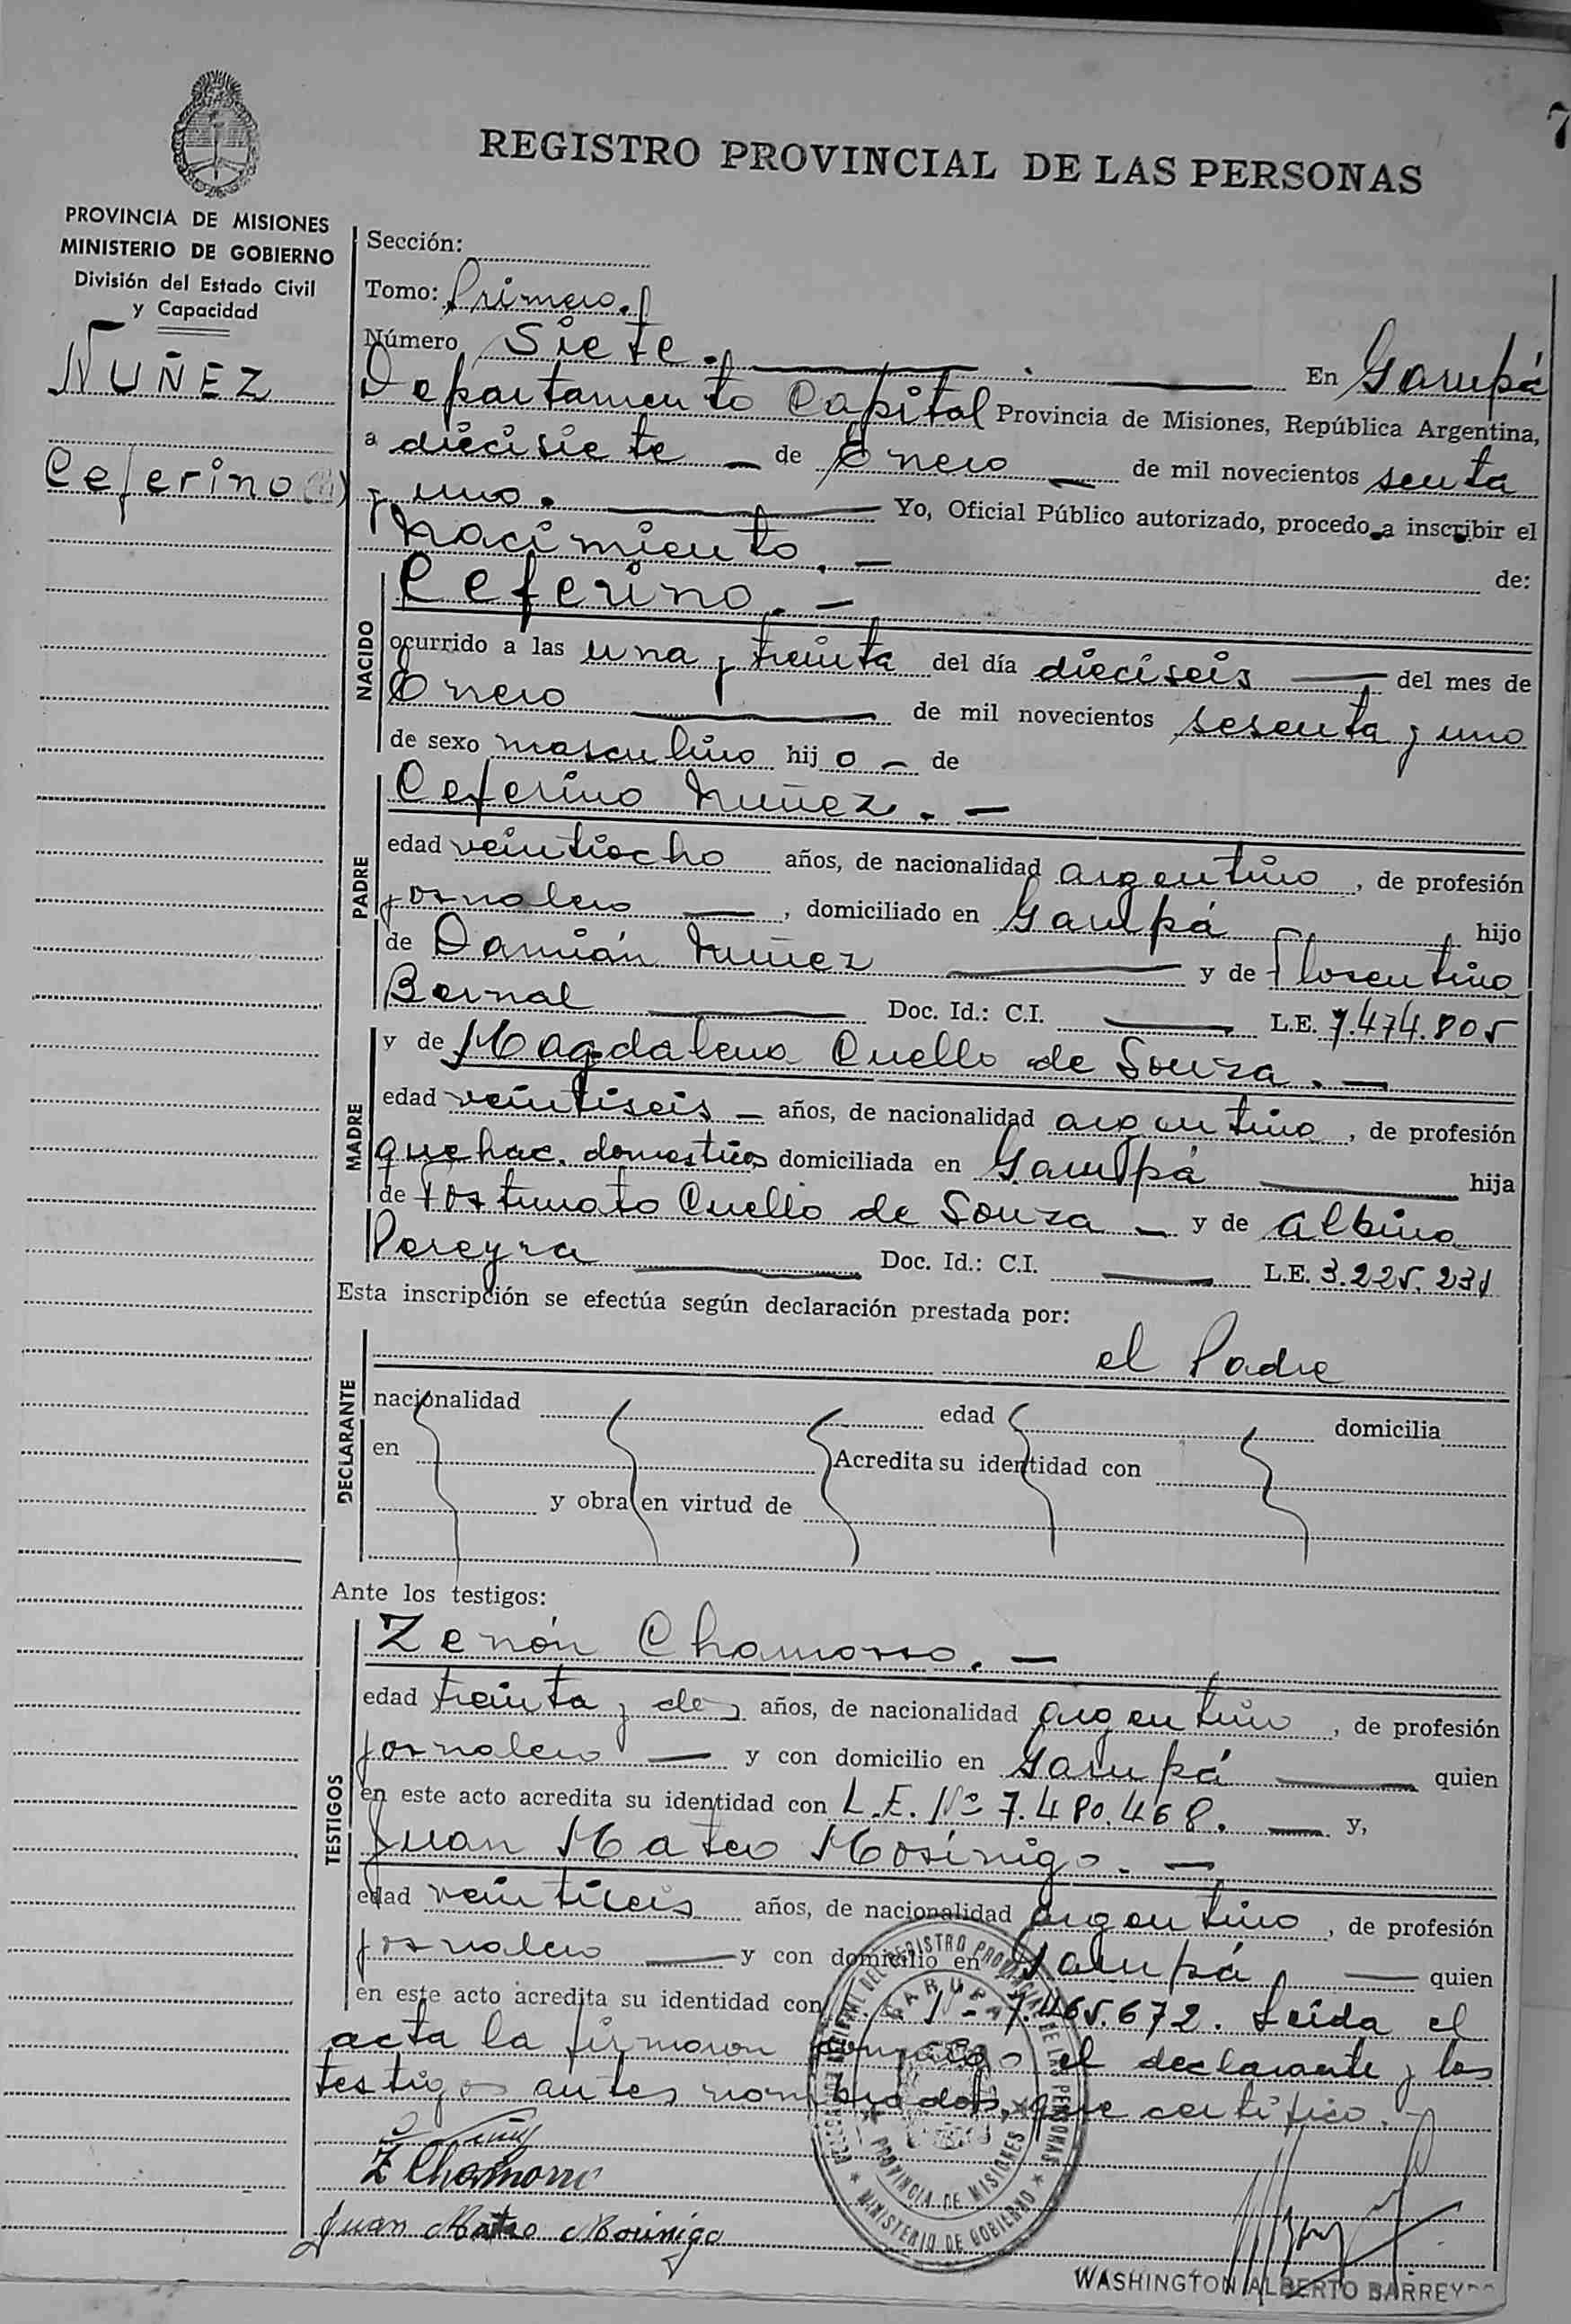 7
REGISTRO PROVINCIAL DE LAS PERSONAS
PROVINCIA DE MISIONES
MINISTERIO DE GOBIERNO
División del Estado Civil
y Capacidad
NUÑEZ
Ceferino
Sección:
Tomo: Primero.
Número Siete. En Garupá
Departamento Capital Provincia de Misiones, República Argentina,
a diecisiete de Enero de mil novecientos senta
y uno. Yo, Oficial Público autorizado, procedo a inscribir el
Nacimiento. de:
NACIDO
Ceferino.
ocurrido a las una y treinta del día dieciseis del mes de
Enero de mil novecientos sesenta y uno
de sexo masculino hijo de
PADRE
Ceferino Nuñez.
edad veintiocho años, de nacionalidad argentino, de profesión
jornalero, domiciliado en Garupá hijo
de Damián Nuñez y de Florentina
Bernal Doc. Id.: C.I. L.E. 7.474.805
MADRE
y de Magdalena Cuello de Souza.
edad veintiseis años, de nacionalidad argentina, de profesión
quehac. domesticos domiciliada en Garupá hija
de Fortunato Cuello de Souza y de Albina
Pereyra Doc. Id.: C.I. L.E. 3.225.231
Esta inscripción se efectúa según declaración prestada por:
DECLARANTE
el Padre
nacionalidad edad domicilia
en Acredita su identidad con
y obra en virtud de
Ante los testigos:
TESTIGOS
Zenón Chamorro.
edad treinta y dos años, de nacionalidad argentino, de profesión
jornalero y con domicilio en Garupá quien
en este acto acredita su identidad con L.E. Nº 7.480.468. y,
Juan Mateo Mosinigo.
edad veintiseis años, de nacionalidad argentino, de profesión
jornalero y con domicilio en Garupá quien
en este acto acredita su identidad con 7.465.672. Leída el
acta la firmaron conmigo el declarante y los
testigos antes nombrados, que certifico.
Z Chamorro
Juan Mateo Mosinigo
GARUPA
PROVINCIA DE MISIONES
MINISTERIO DE GOBIERNO
WASHINGTON ALBERTO BARREYRO